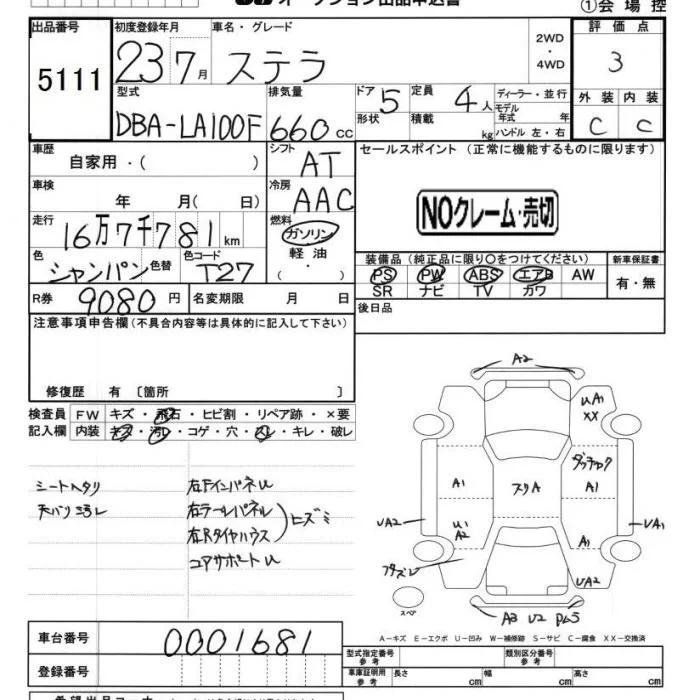 オークション出品申込書
①会場控
出品番号
5111
初度登録年月
23 7月
車名・グレード
ステラ
2WD
・
4WD
評価点
3
外装 内装
C C
型式
DBA-LA100F
排気量
660 cc
ドア 5
形状
定員 4人
積載 kg
ディーラー・並行
モデル年式 年
ハンドル 左・右
車歴
自家用・( )
シフト
AT
セールスポイント (正常に機能するものに限ります)
NOクレーム・売切
車検
年 月( 日)
冷房
AAC
走行
16万7千781km
燃料
ガソリン
軽油
・
( )
色
シャンパン
色替
色コード
T27
装備品 (純正品に限り○をつけてください)
PS PW ABS エアB AW
SR ナビ TV カワ
新車保証書
有・無
R券 9080円
名変期限 月 日
後日品
注意事項申告欄 (不具合内容等は具体的に記入して下さい)
修復歴 有 〔箇所 〕
検査員記入欄
FW キズ・飛石・ヒビ割・リペア跡・×要
内装 キズ・汚レ・コゲ・穴・スレ・キレ・破レ
シートヘタリ
天バリヨゴレ
右FインパネU
右テールパネル
右Rタイヤハウス
ヒズミ
コアサポートU
A2
UA1
XX
ダッチャク
A1
A1
スリA
UA2
U1
A2
UA1
A1
フタズレ
UA2
スペア
A3 U2
A-キズ E-エクボ U-凹み W-補修跡 S-サビ C-腐食 XX-交換済
車台番号
0001681
登録番号
型式指定番号
参考
類別区分番号
参考
車庫証明用
参考
長さ cm
幅 cm
高さ cm